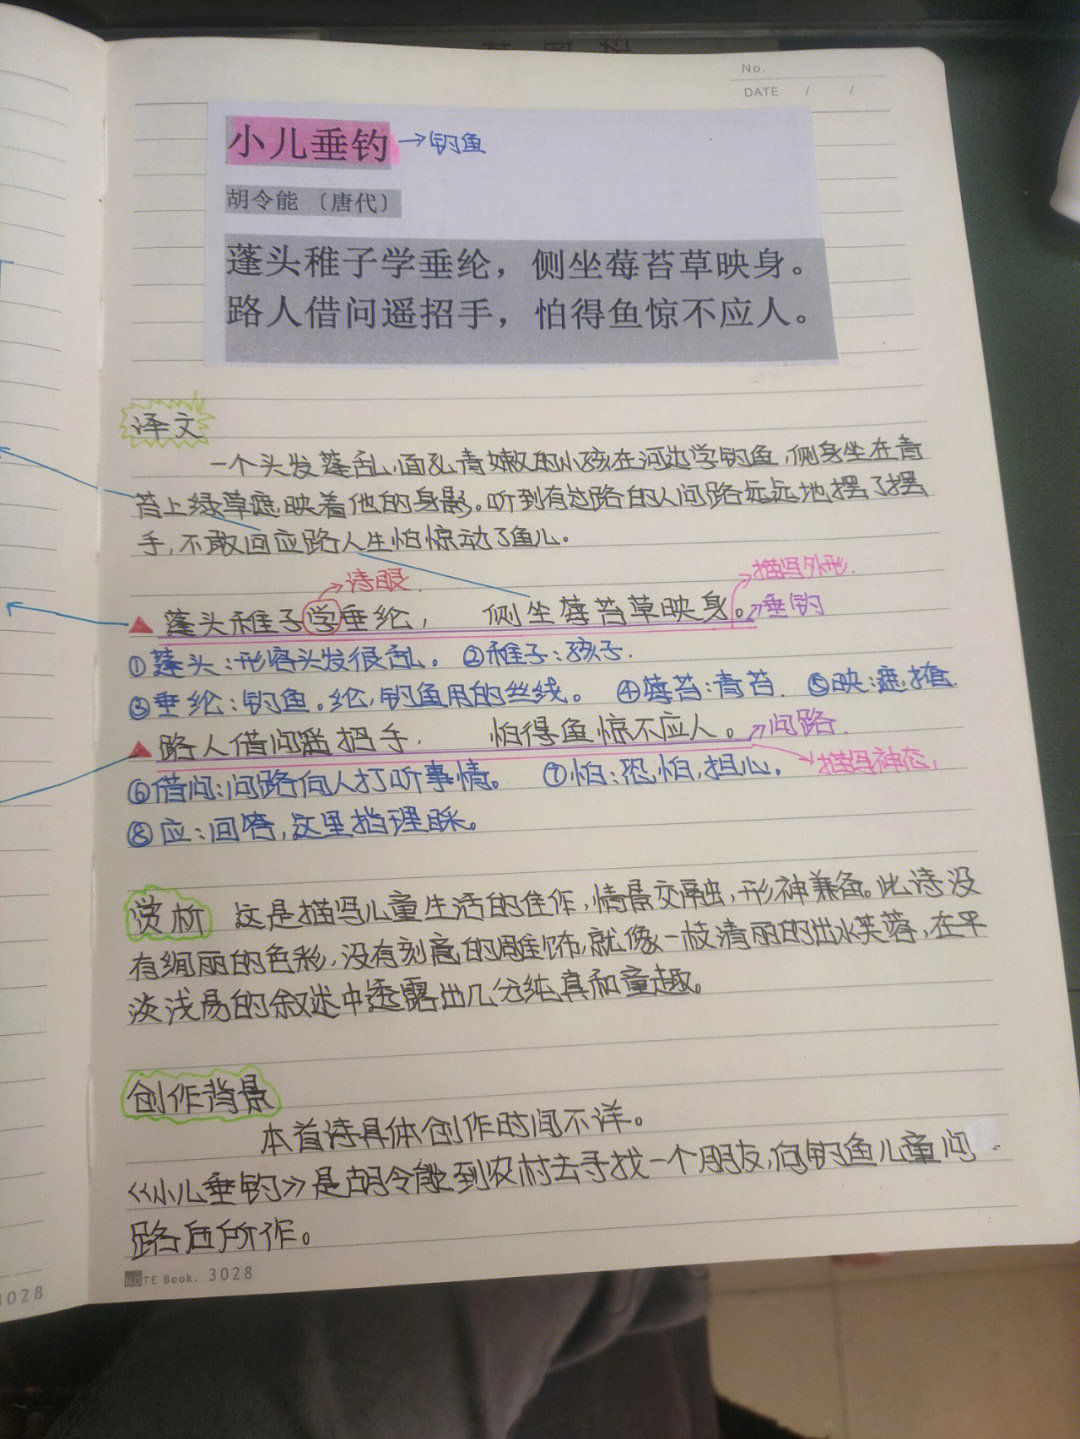 No.
DATE / /
小儿垂钓 →钓鱼
胡令能 〔唐代〕
蓬头稚子学垂纶，侧坐莓苔草映身。
路人借问遥招手，怕得鱼惊不应人。
译文
一个头发蓬乱,面孔青嫩的小孩在河边学钓鱼,侧身坐在青
苔上绿草遮映着他的身影。听到有过路的人问路远远地摆了摆
手,不敢回应路人生怕惊动了鱼儿。
诗眼.
描写外形.
蓬头稚子学垂纶, 侧坐莓苔草映身。 垂钓
①蓬头:形容头发很乱。 ②稚子:孩子.
③垂纶:钓鱼。纶,钓鱼用的丝线。 ④莓苔:青苔. ⑤映:遮掩.
路人借问遥招手. 怕得鱼惊不应人。 问路.
描写神态,
⑥借问:问路向人打听事情。 ⑦怕:恐怕,担心.
⑧应:回答,这里指理睬。
赏析 这是描写儿童生活的佳作,情景交融,形神兼备。此诗没
有绚丽的色彩,没有刻意的雕饰,就像一枝清丽的出水芙蓉,在平
淡浅易的叙述中透露出几分纯真和童趣。
创作背景
本首诗具体创作时间不详。
《小儿垂钓》是胡令能到农村去寻找一个朋友,向钓鱼儿童问
路后所作。
NOTE Book. 3028
3028